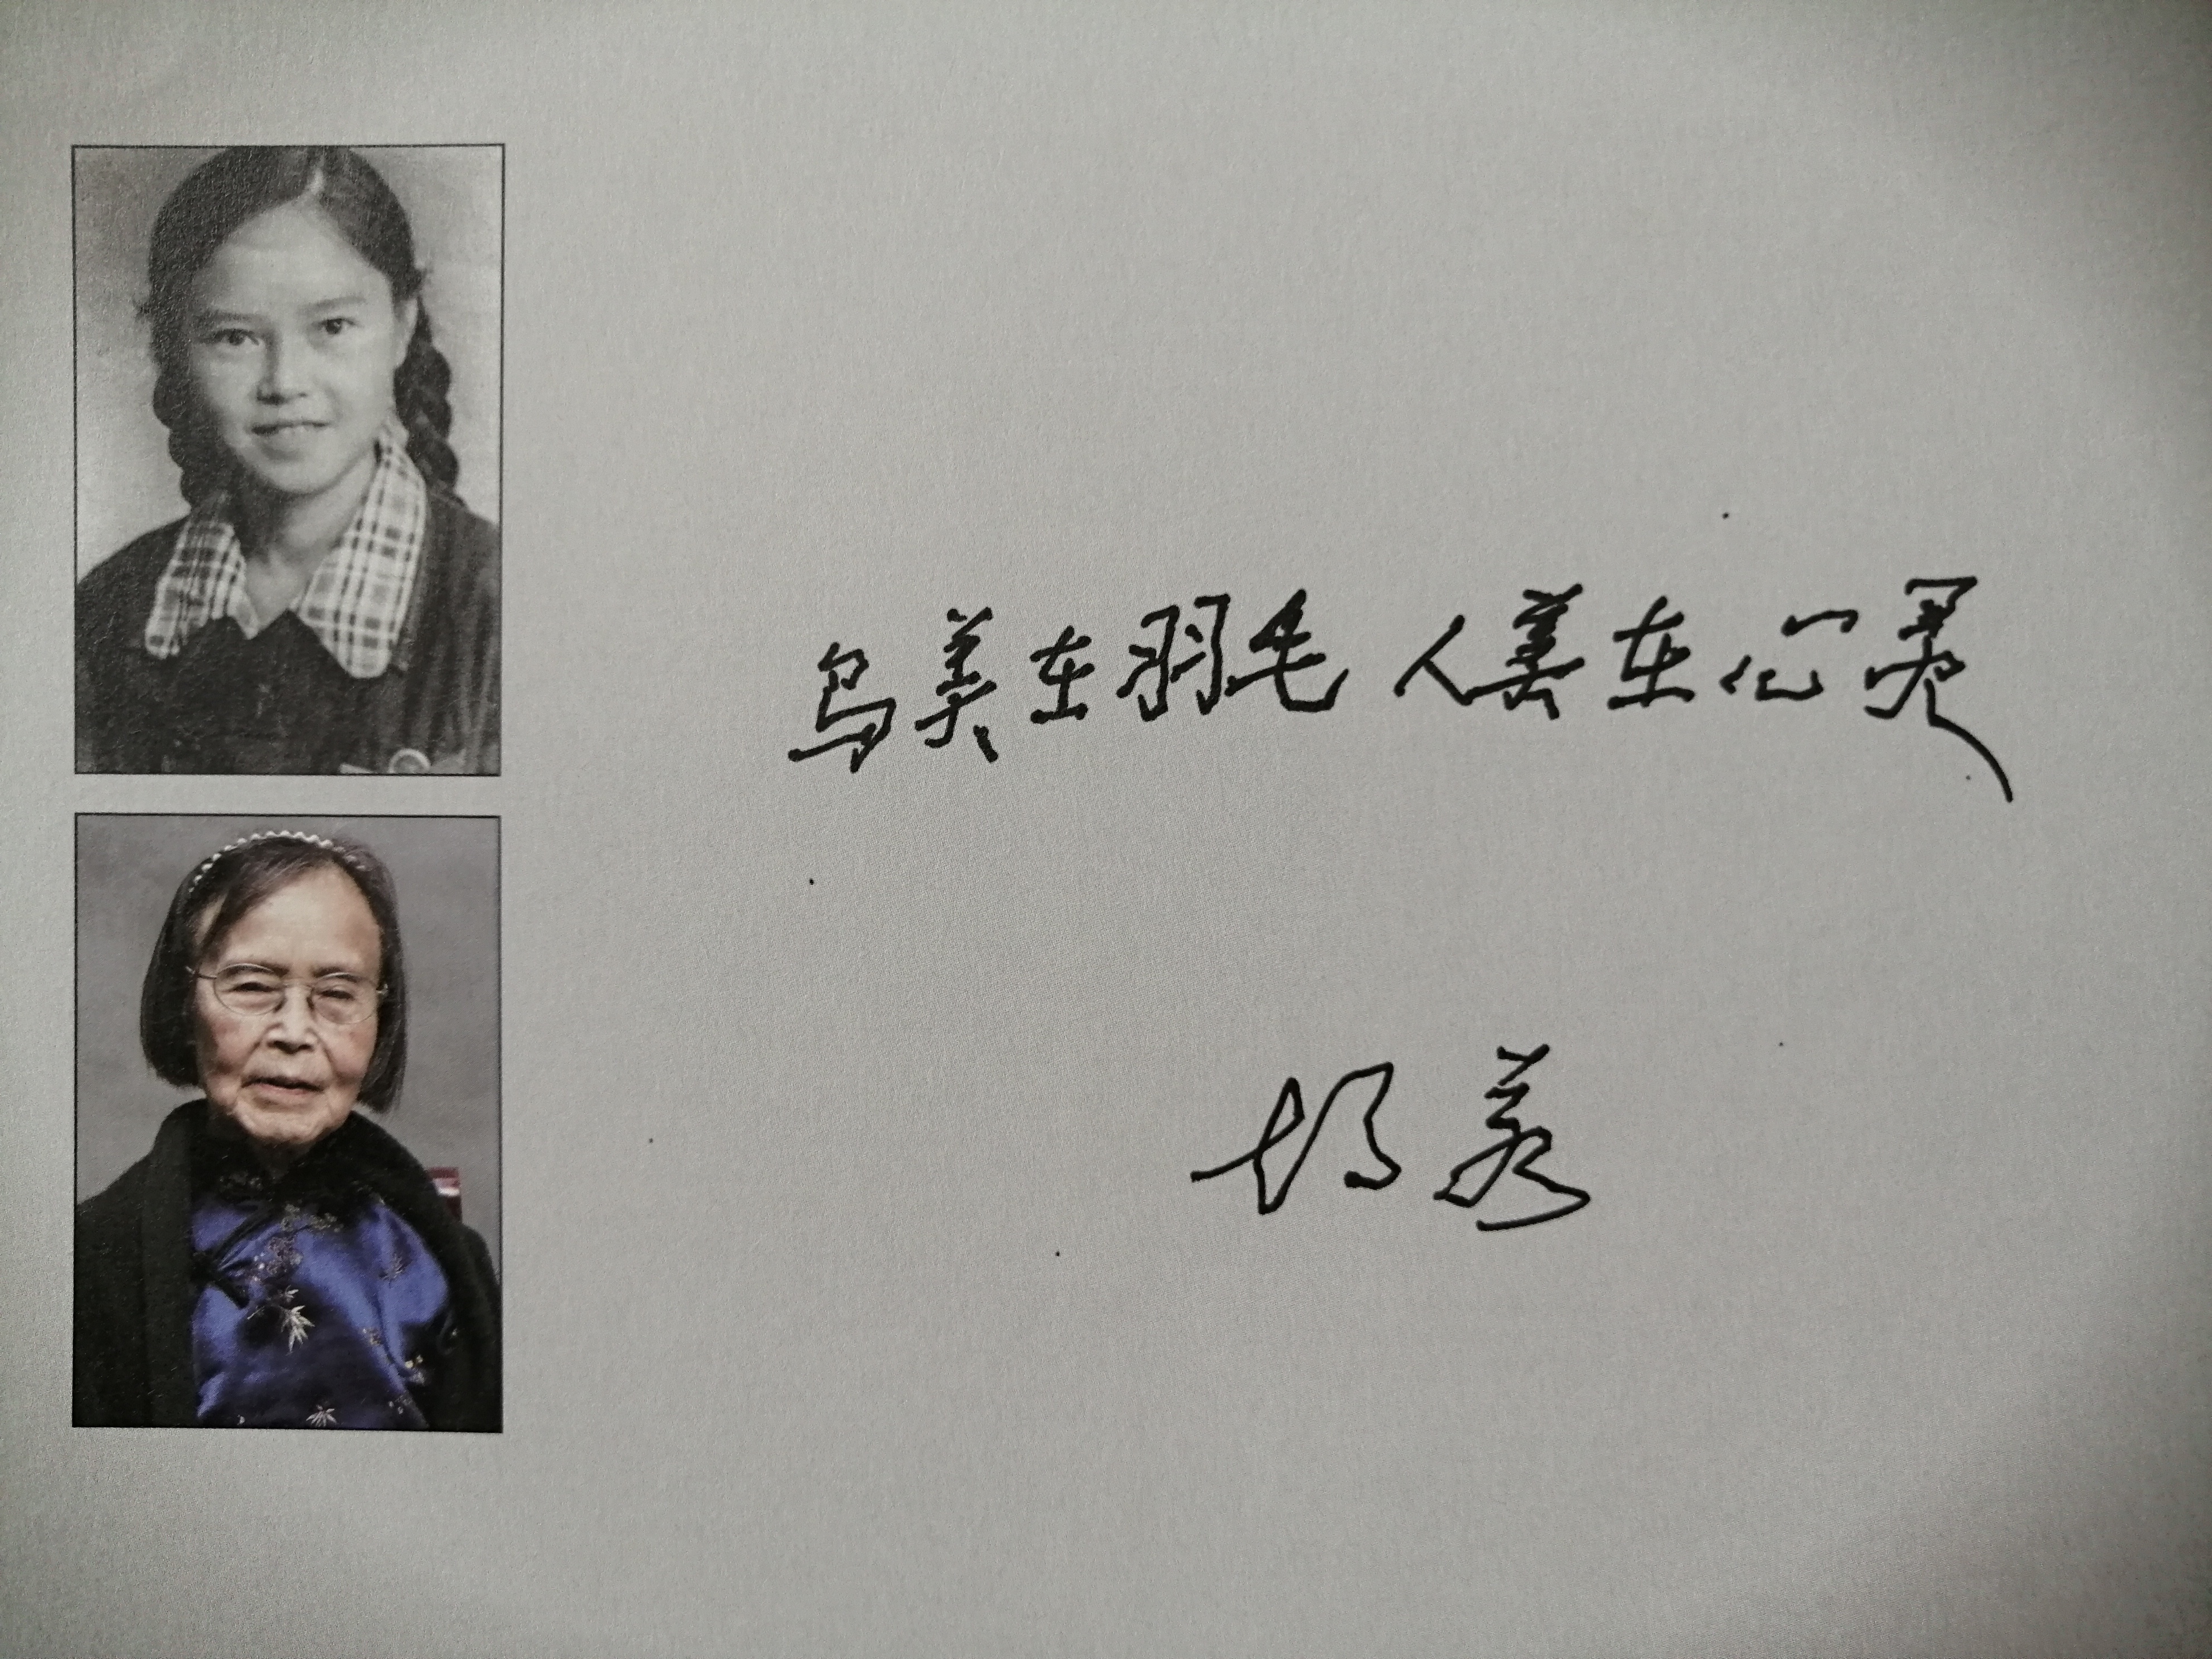 鸟美在羽毛 人美在心灵
胡